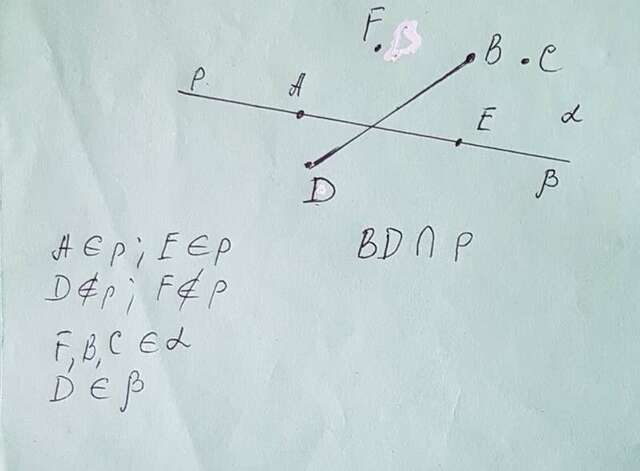 F B C
p A E α
D β
A ∈ p ; E ∈ p BD ∩ p
D ∉ p ; F ∉ p
F, B, C ∈ α
D ∈ β